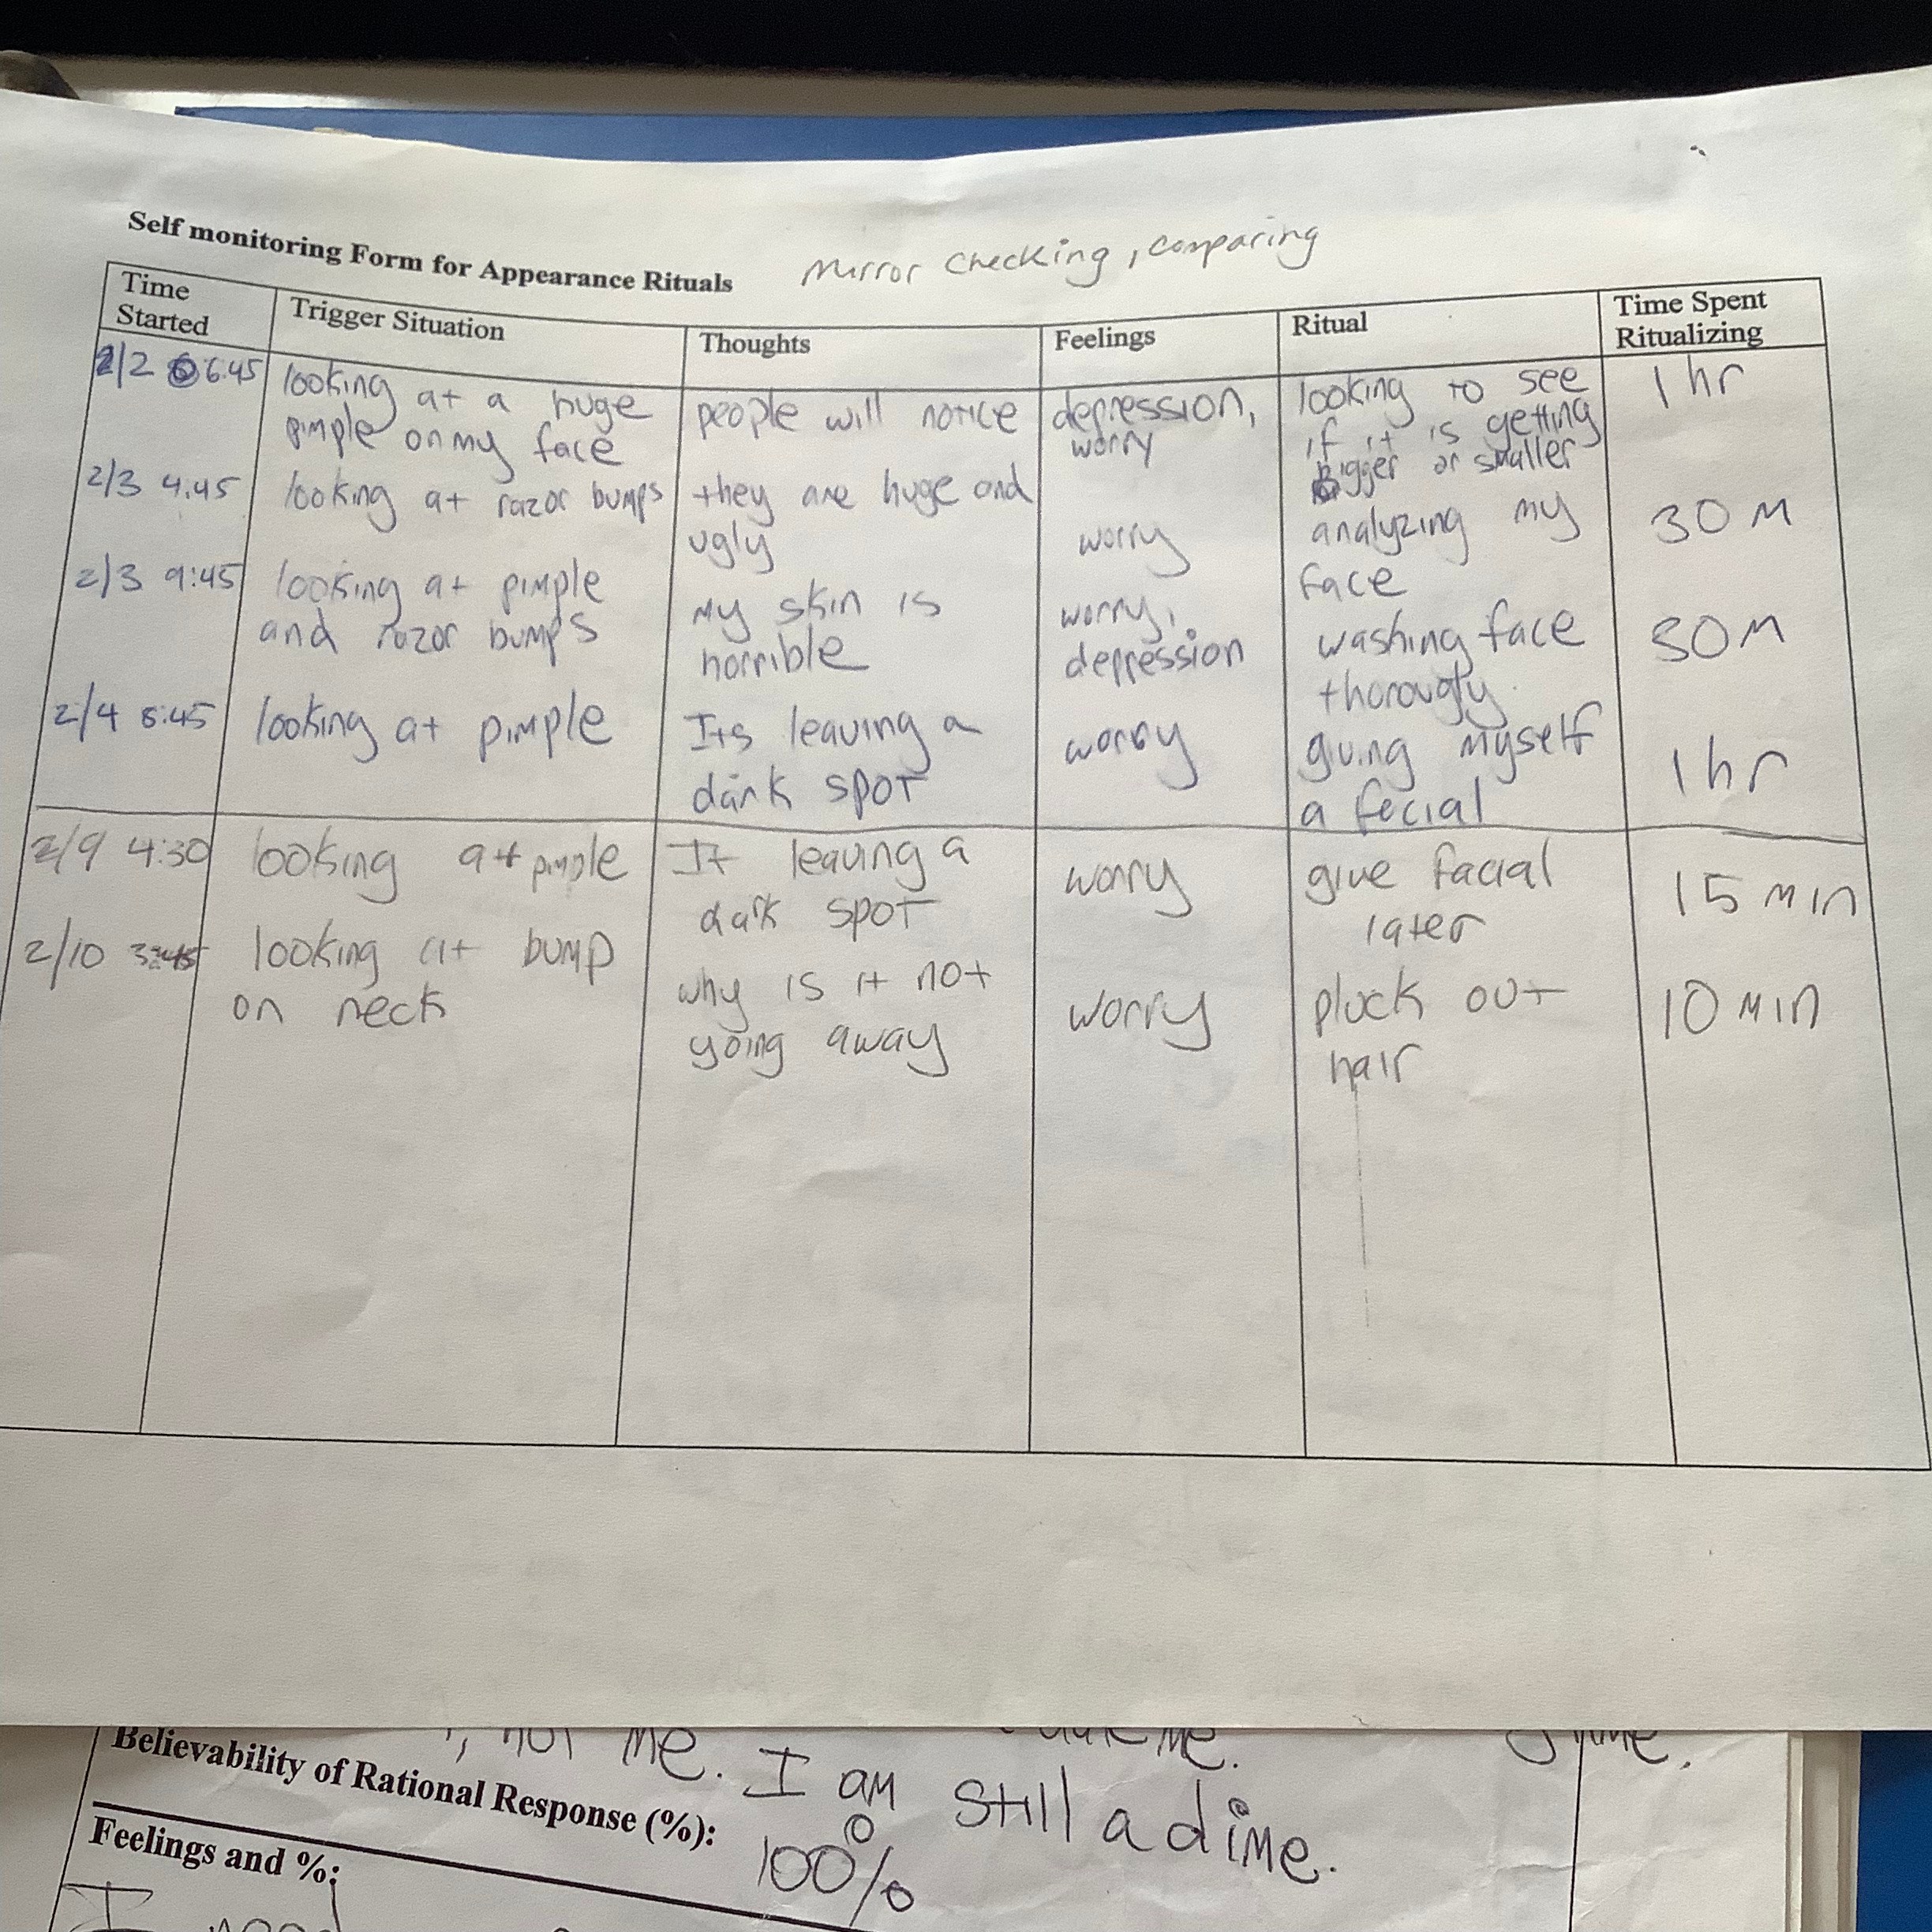 Self monitoring Form for Appearance Rituals
Mirror checking, comparing
Time Started
Trigger Situation
Thoughts
Feelings
Ritual
Time Spent Ritualizing
2/2 6:45
looking at a huge
pimple on my face
people will notice
depression,
worry
looking to see
if it is getting
bigger or smaller
1 hr
2/3 4:45
looking at razor bumps
they are huge and
ugly
worry
analyzing my
face
30 M
2/3 9:45
looking at pimple
and razor bumps
My skin is
horrible
worry,
depression
washing face
thorougly
30 M
2/4 8:45
looking at pimple
Its leaving a
dark spot
worry
giving myself
a fecial
1 hr
2/9 4:30
looking at pimple
It leaving a
dark spot
worry
give facial
later
15 min
2/10 3:45
looking at bump
on neck
why is it not
going away
worry
pluck out
hair
10 min
me. I am still a dime.
Believability of Rational Response (%):
100%
Feelings and %: